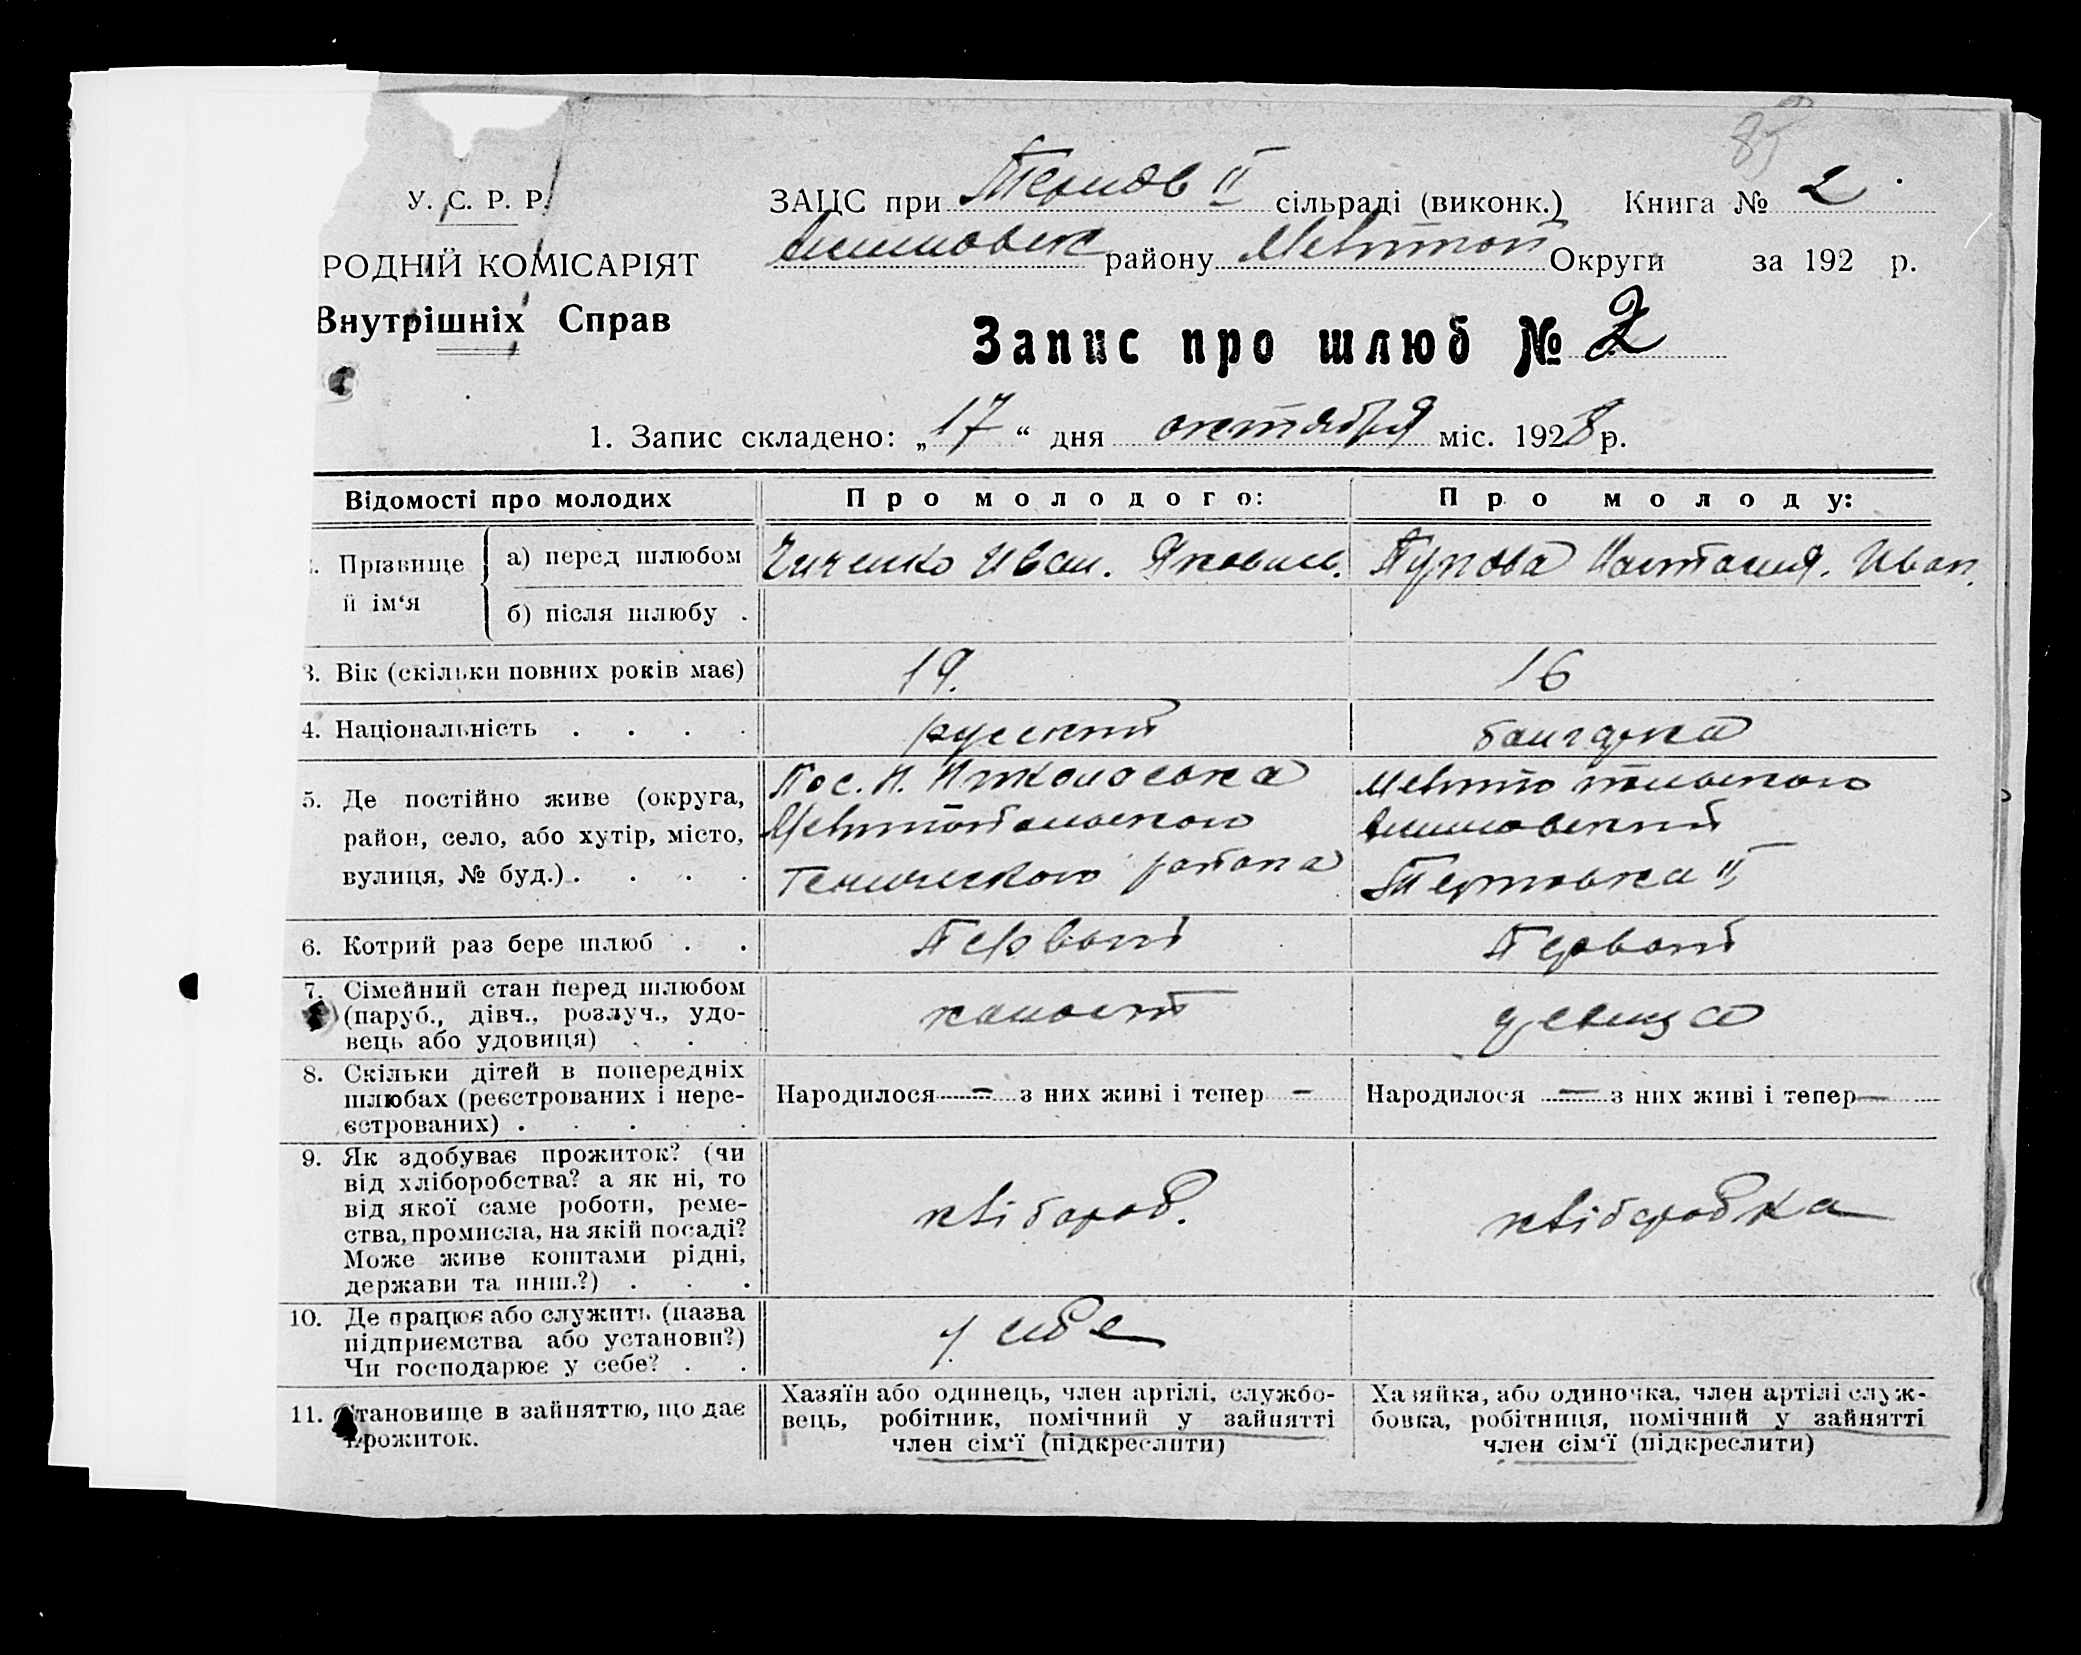 85
У. С. Р. Р.
ЗАЦС при Терпов II сільраді (виконк.) Книга № 2
РОДНІЙ КОМІСАРІЯТ
району Мелитоп Округи за 192 р.
Внутрішніх Справ
Запис про шлюб № 2
1. Запис складено: „17“ дня октября міс. 1928 р.
Відомості про молодих Про молодого: Про молоду:
Прізвище й ім‘я а) перед шлюбом Иван. Яковлев. Настасия. Иван.
б) після шлюбу .
3. Вік (скільки повних років має) 19. 16
4. Національність . . . . русский болгарка
5. Де постійно живе (округа, Пос. Н. Мелитопольского
район, село, або хутір, місто, Мелитопольского
вулиця, № буд.). . . . . Генического района Терповка II
6. Котрий раз бере шлюб . . Первый Первый
7. Сімейний стан перед шлюбом
(паруб., дівч., розлуч., удо- холост девица
вець або удовиця) . . .
8. Скільки дітей в попередніх
шлюбах (реєстрованих і нере- Народилося — з них живі і тепер — Народилося — з них живі і тепер —
єстрованих) . . . . .
9. Як здобуває прожиток? (чи
від хліборобства? а як ні, то
від якої саме роботи, реме- хлібороб. хліборобка
ства, промисла, на якій посаді?
Може живе коштами рідні,
держави та инш.?) . . .
10. Де працює або служить (назва
підприємства або установи?) у себе
Чи господарює у себе? . .
11. Становище в зайняттю, що дає
прожиток.
Хазяїн або одинець, член артілі, службо-
вець, робітник, помічний у зайнятті
член сім‘ї (підкреслити)
Хазяйка, або одиночка, член артілі служ-
бовка, робітниця, помічний у зайнятті
член сім‘ї (підкреслити)